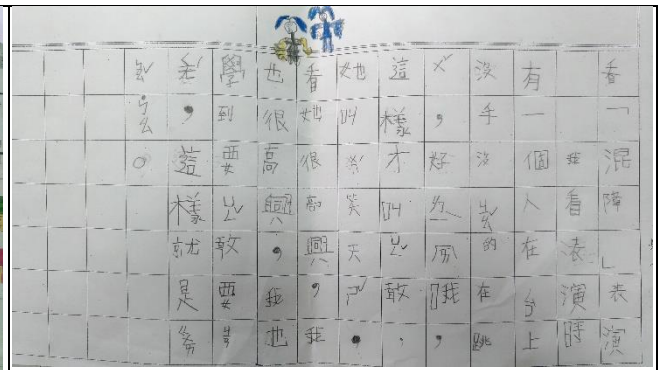 看「混障」表演
我看表演時
有一個人在台上
沒手沒的在跳
ㄨˇ，好哦，
這樣才叫ㄩㄥˇ敢，
她叫笑天ㄕˇ。
看她很高興，我
也很高興，我也
學到要ㄩㄥˇ敢要
，這樣就是
。